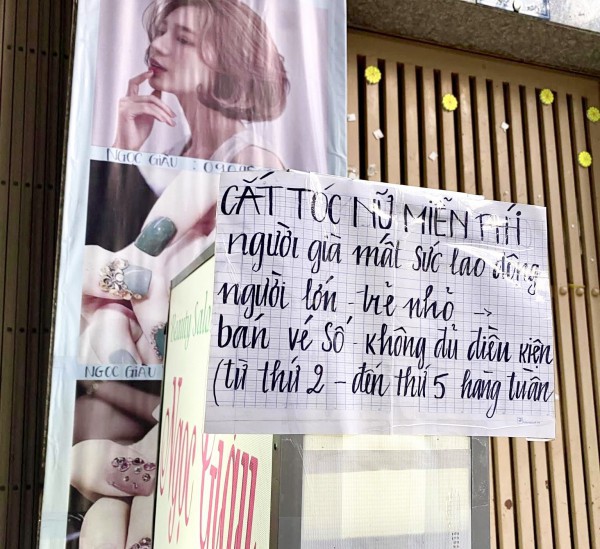 NGỌC GIÀU : 090
CẮT TÓC NỮ MIỄN PHÍ
người già mất sức lao động
người lớn - trẻ nhỏ →
bán vé số - không đủ điều kiện
(từ thứ 2 - đến thứ 5 hàng tuần
NGỌC GIÀU
Beauty Salon
Ngọc Giàu